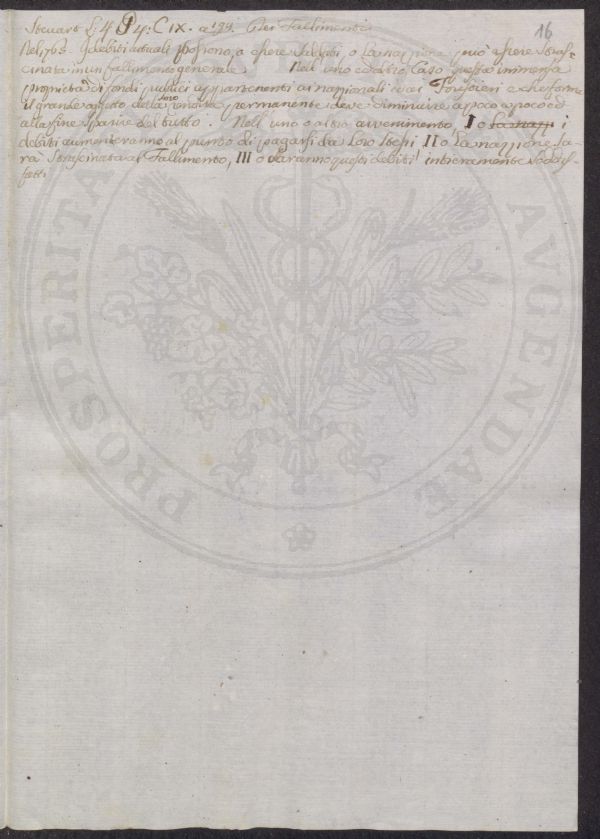 16
Steuart L: 4 P 4: C IX. a 199. Dei Fallimenti
Nel 1763. I debiti attuali possono, o essere saldati, o la nazione può essere strasc-
cinata in un fallimento generale. Nell' uno ed altro caso questa immensa
proprietà di fondi publici appartenenti ai nazionali ed ai Forestieri e che forma
il grande oggetto della loro entrata permanente deve diminuire a poco a poco ed
alla fine sparire del tutto. Nell' uno o altro avvenimento I o la nazz i
debiti aumenteranno al punto di pagarsi da loro stessi II o la nazione sa-
rà strascinata al Fallimento, III o saranno questi debiti interamente sodis-
fatti
PROSPERITATI AVGENDAE